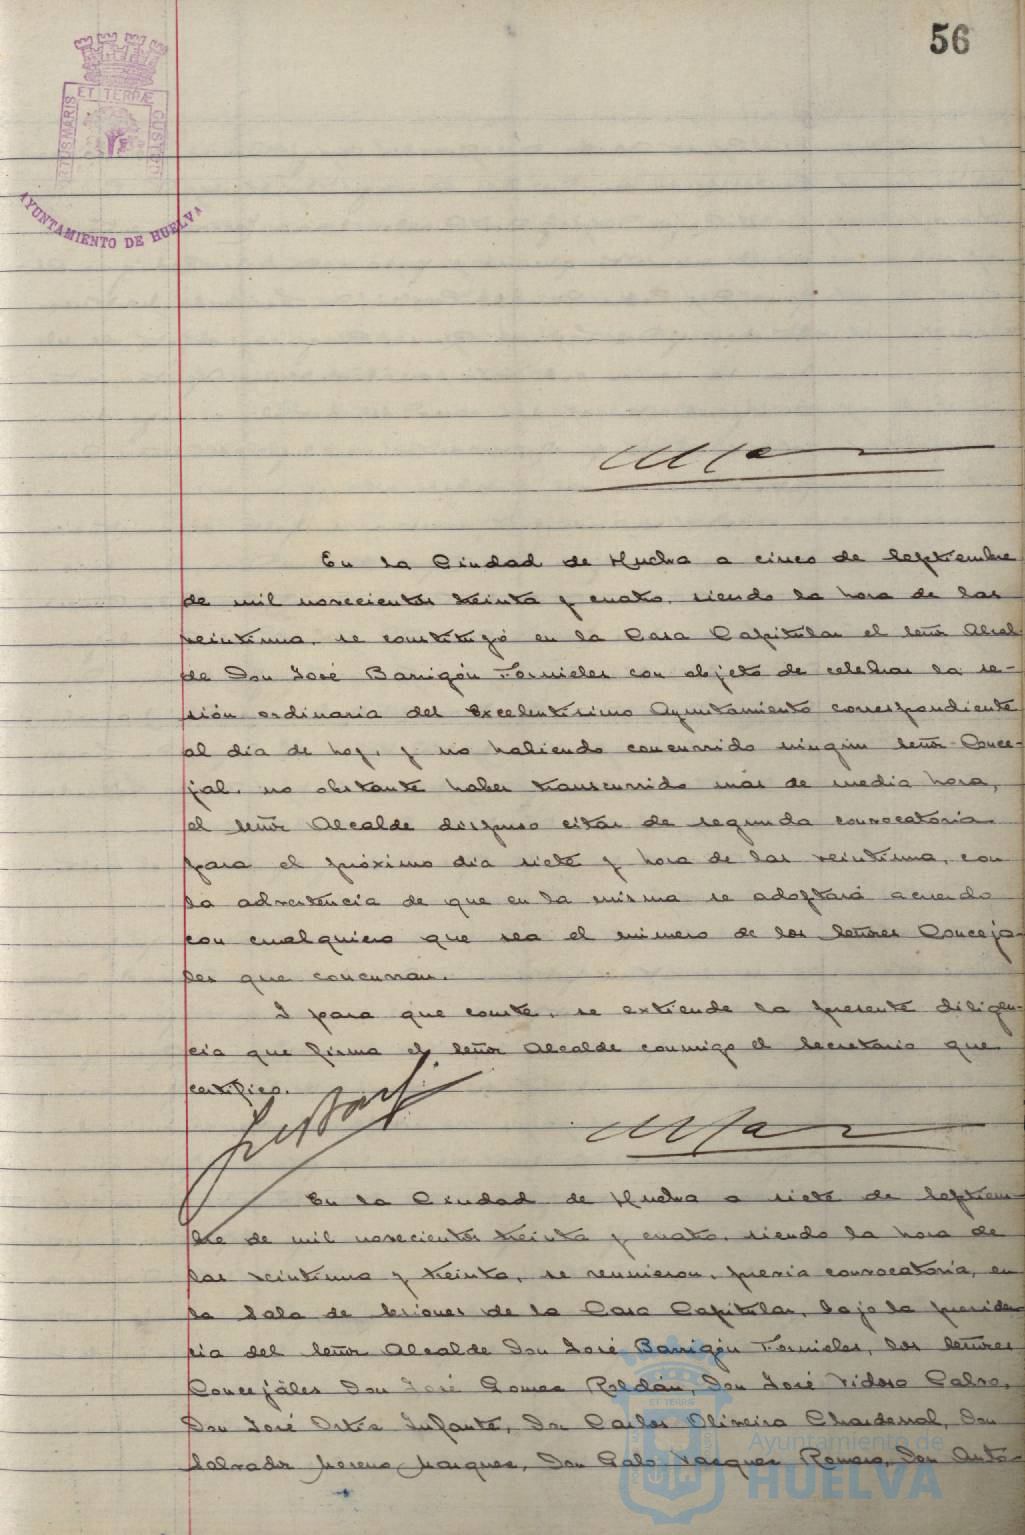 56
ET TERRÆ
PORTUS MARIS
CUSTODIA
AYUNTAMIENTO DE HUELVA
En la Ciudad de Huelva a cinco de Septiembre
de mil novecientos treinta y cuatro, siendo la hora de las
veintiuna, se constituyó en la Casa Capitular el Señor Alcal
de Don José Barrigón Fornieles con objeto de celebrar la se-
sión ordinaria del Excelentísimo Ayuntamiento correspondiente
al día de hoy, y no habiendo concurrido ningún Señor Conce-
jal, no obstante haber transcurrido más de media hora,
el Señor Alcalde dispuso citar de segunda convocatoria
para el próximo día siete y hora de las veintiuna, con
la advertencia de que en la misma se adoptará acuerdo
con cualquiera que sea el número de los Señores Conceja-
les que concurran.
Y para que conste, se extiende la presente diligen-
cia que firma el Señor Alcalde conmigo el Secretario que
certifico.
En la Ciudad de Huelva a siete de Septiem-
bre de mil novecientos treinta y cuatro, siendo la hora de
las veintiuna y treinta, se reunieron, previa convocatoria, en
la Sala de Sesiones de la Casa Capitular, bajo la presiden-
cia del Señor Alcalde Don José Barrigón Fornieles, los Señores
Concejales Don José Gomez Roldán, Don José Vidosa Calvo,
Don José Ortiz Infante, Don Carlos Oliveira Chardenal, Don
Salvador Moreno Marquez, Don Galo Vazquez Romero, Don Anto-
Ayuntamiento de
HUELVA